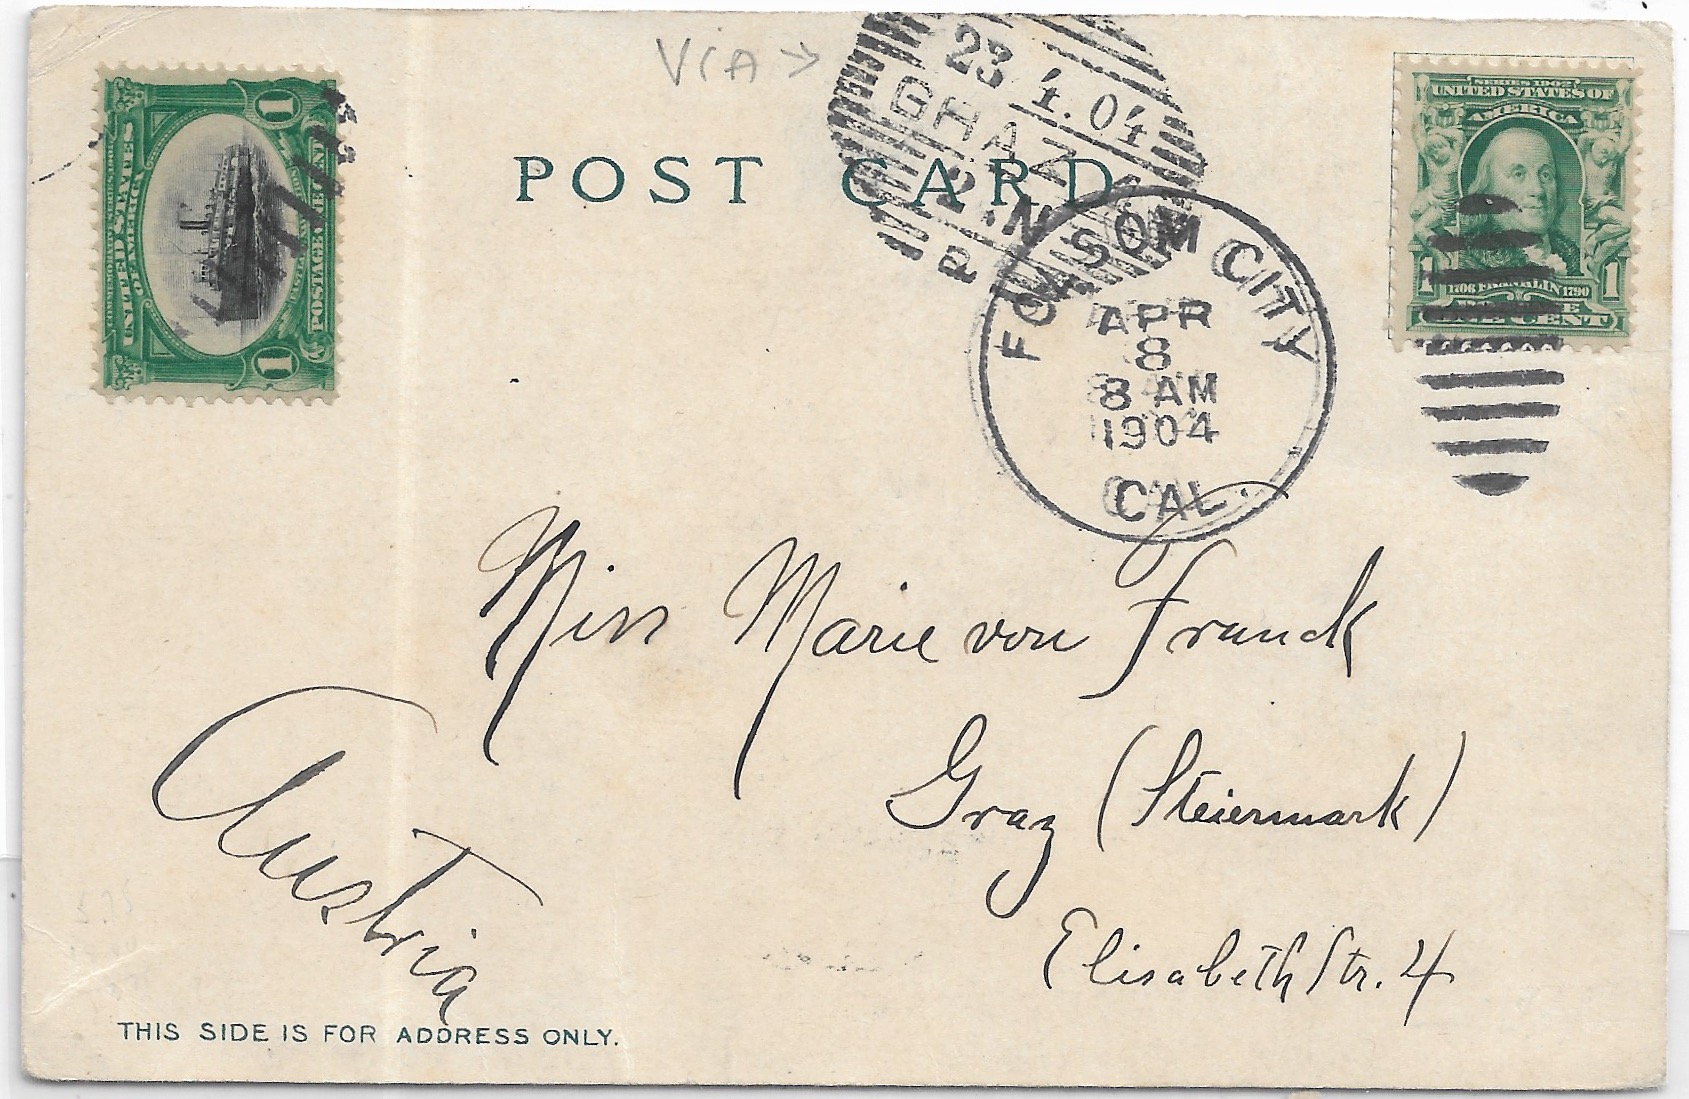 VIA →
23 4. 04
GRAZ
2. N
POST CARD
FOLSOM CITY
APR
8
8 AM
1904
CAL.
1
UNITED STATES
OF AMERICA
POSTAGE ONE CENT
1
SERIES 1902
UNITED STATES OF
AMERICA
1 1706 FRANKLIN 1790 1
ONE CENT
Miss Marie von Franck
Graz (Steiermark)
Elisabeth Str. 4
Austria
THIS SIDE IS FOR ADDRESS ONLY.